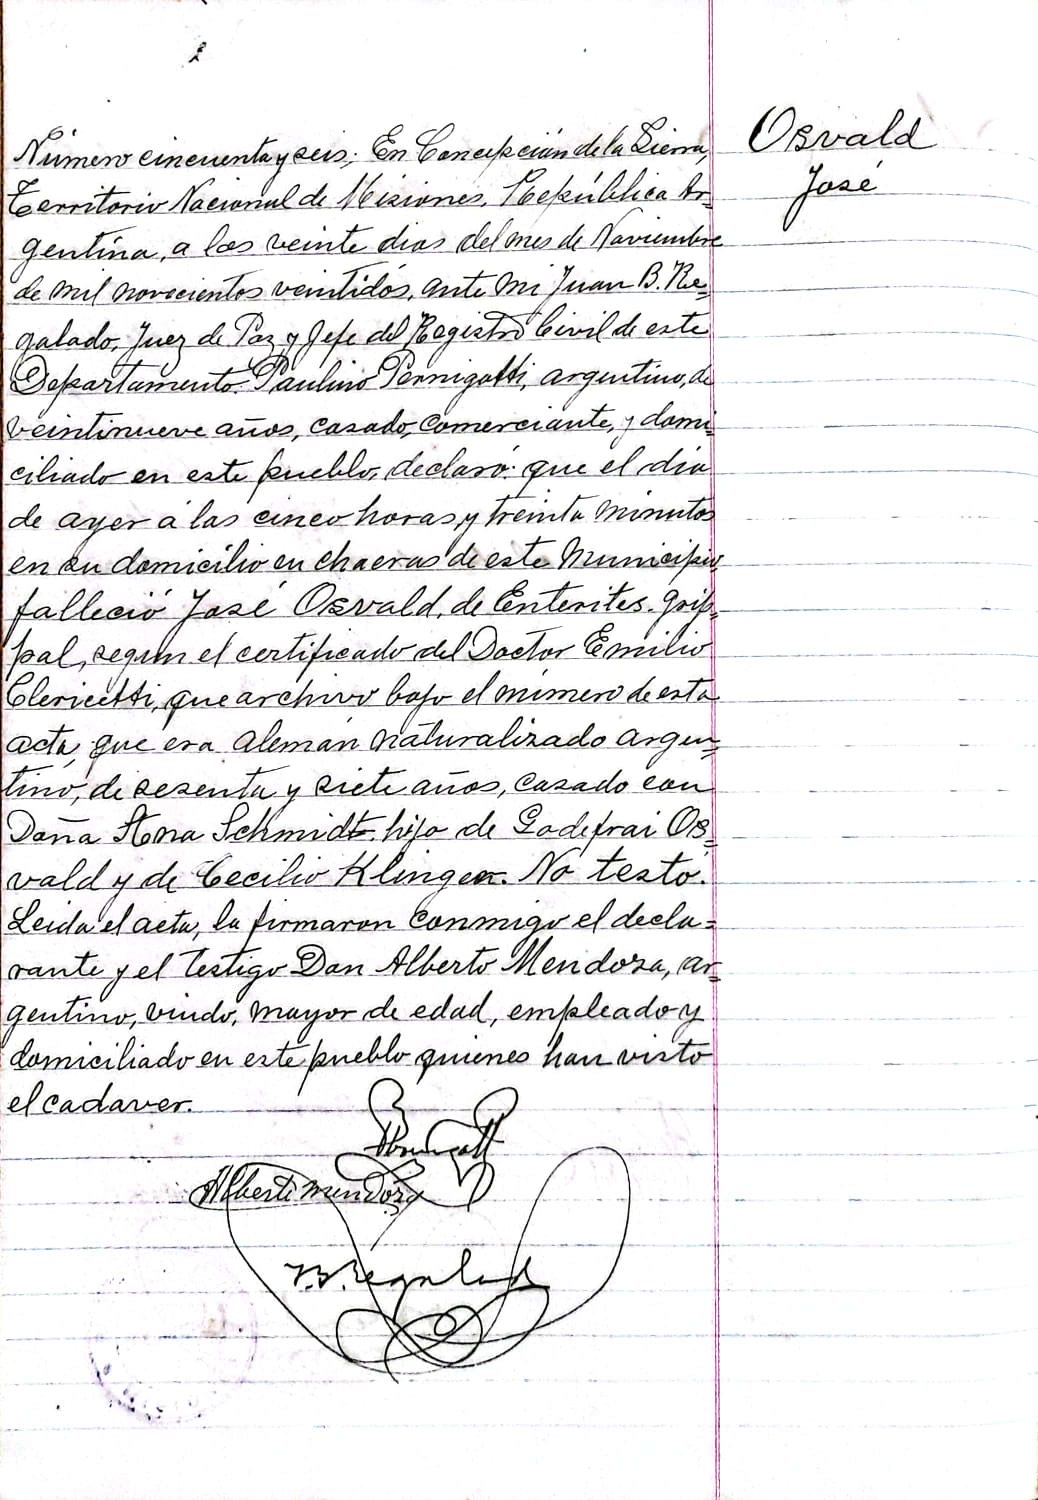 Osvald
José
Número cincuenta y seis; En Concepción de la Sierra,
Territorio Nacional de Misiones, República Ar-
gentina, a los veinte dias del mes de Noviembre
de mil novecientos veintidós, ante mi Juan B. Re-
galado, Juez de Paz y Jefe del Registro Civil de este
Departamento. Paulino Pernigotti, argentino, de
veintinueve años, casado, comerciante, y domi-
ciliado en este pueblo, declaró: que el día
de ayer á las cinco horas y treinta minutos
en su domicilio en chacras de este Municipio
falleció José Osvald, de Enterites. Grip-
pal, segun el certificado del Doctor Emilio
Clericetti, que archivo bajo el número de esta
acta, que era alemán naturalizado argen-
tino, de sesenta y siete años, casado con
Doña Ana Schmidt. hijo de Godefrai Os-
vald y de Cecilio Klinger. No testó.
Leida el acta, la firmaron conmigo el decla-
rante y el testigo Don Alberto Mendoza, ar-
gentino, viudo, mayor de edad, empleado y
domiciliado en este pueblo quienes han visto
el cadaver.
Alberto Mendoza